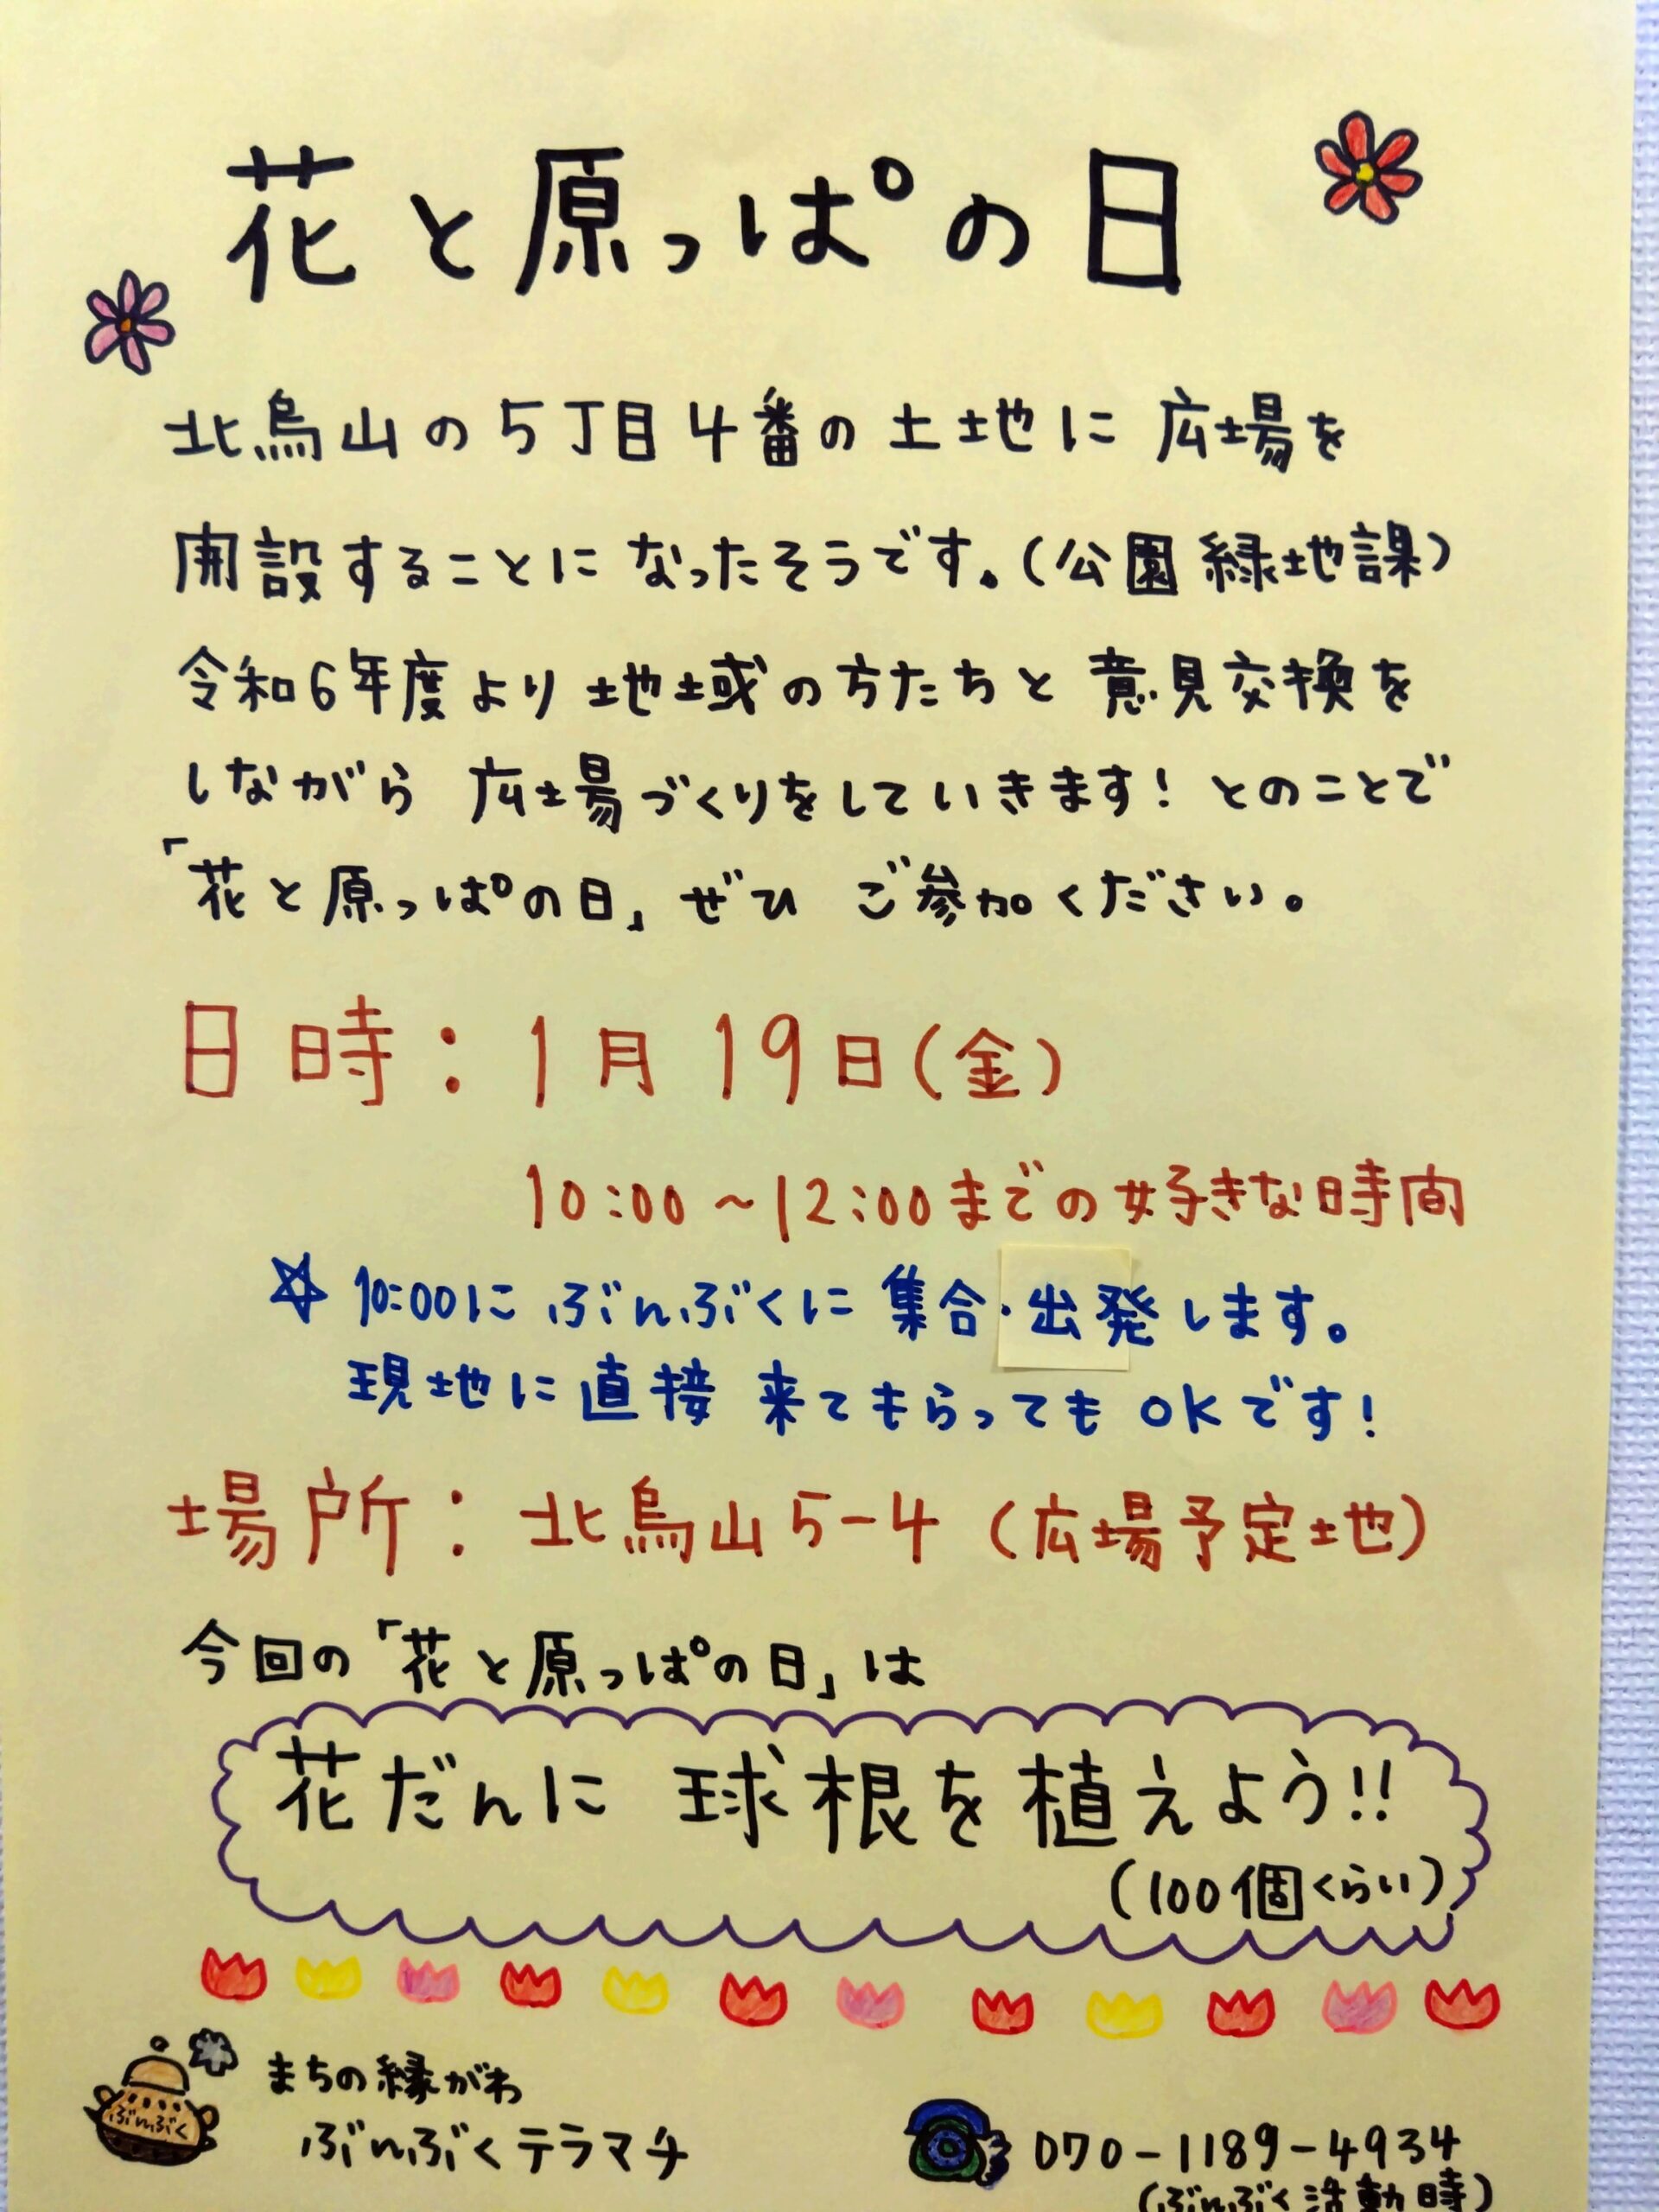 花と原っぱの日
北烏山の5丁目4番の土地に 広場を
開設することに なったそうです。(公園緑地課)
令和6年度より 地域の方たちと 意見交換を
しながら 広場づくりをしていきます! とのことで
「花と原っぱの日」 ぜひ ご参加ください。
日時:1月19日(金)
10:00~12:00までの好きな時間
☆ 10:00に ぶんぶくに 集合・出発します。
現地に直接 来てもらっても OKです!
場所:北烏山5-4 (広場予定地)
今回の「花と原っぱの日」は
花だんに 球根を植えよう!!
(100個くらい)
ぶんぶく
まちの縁がわ
ぶんぶくテラマチ
070-1189-4934
(ぶんぶく活動時)